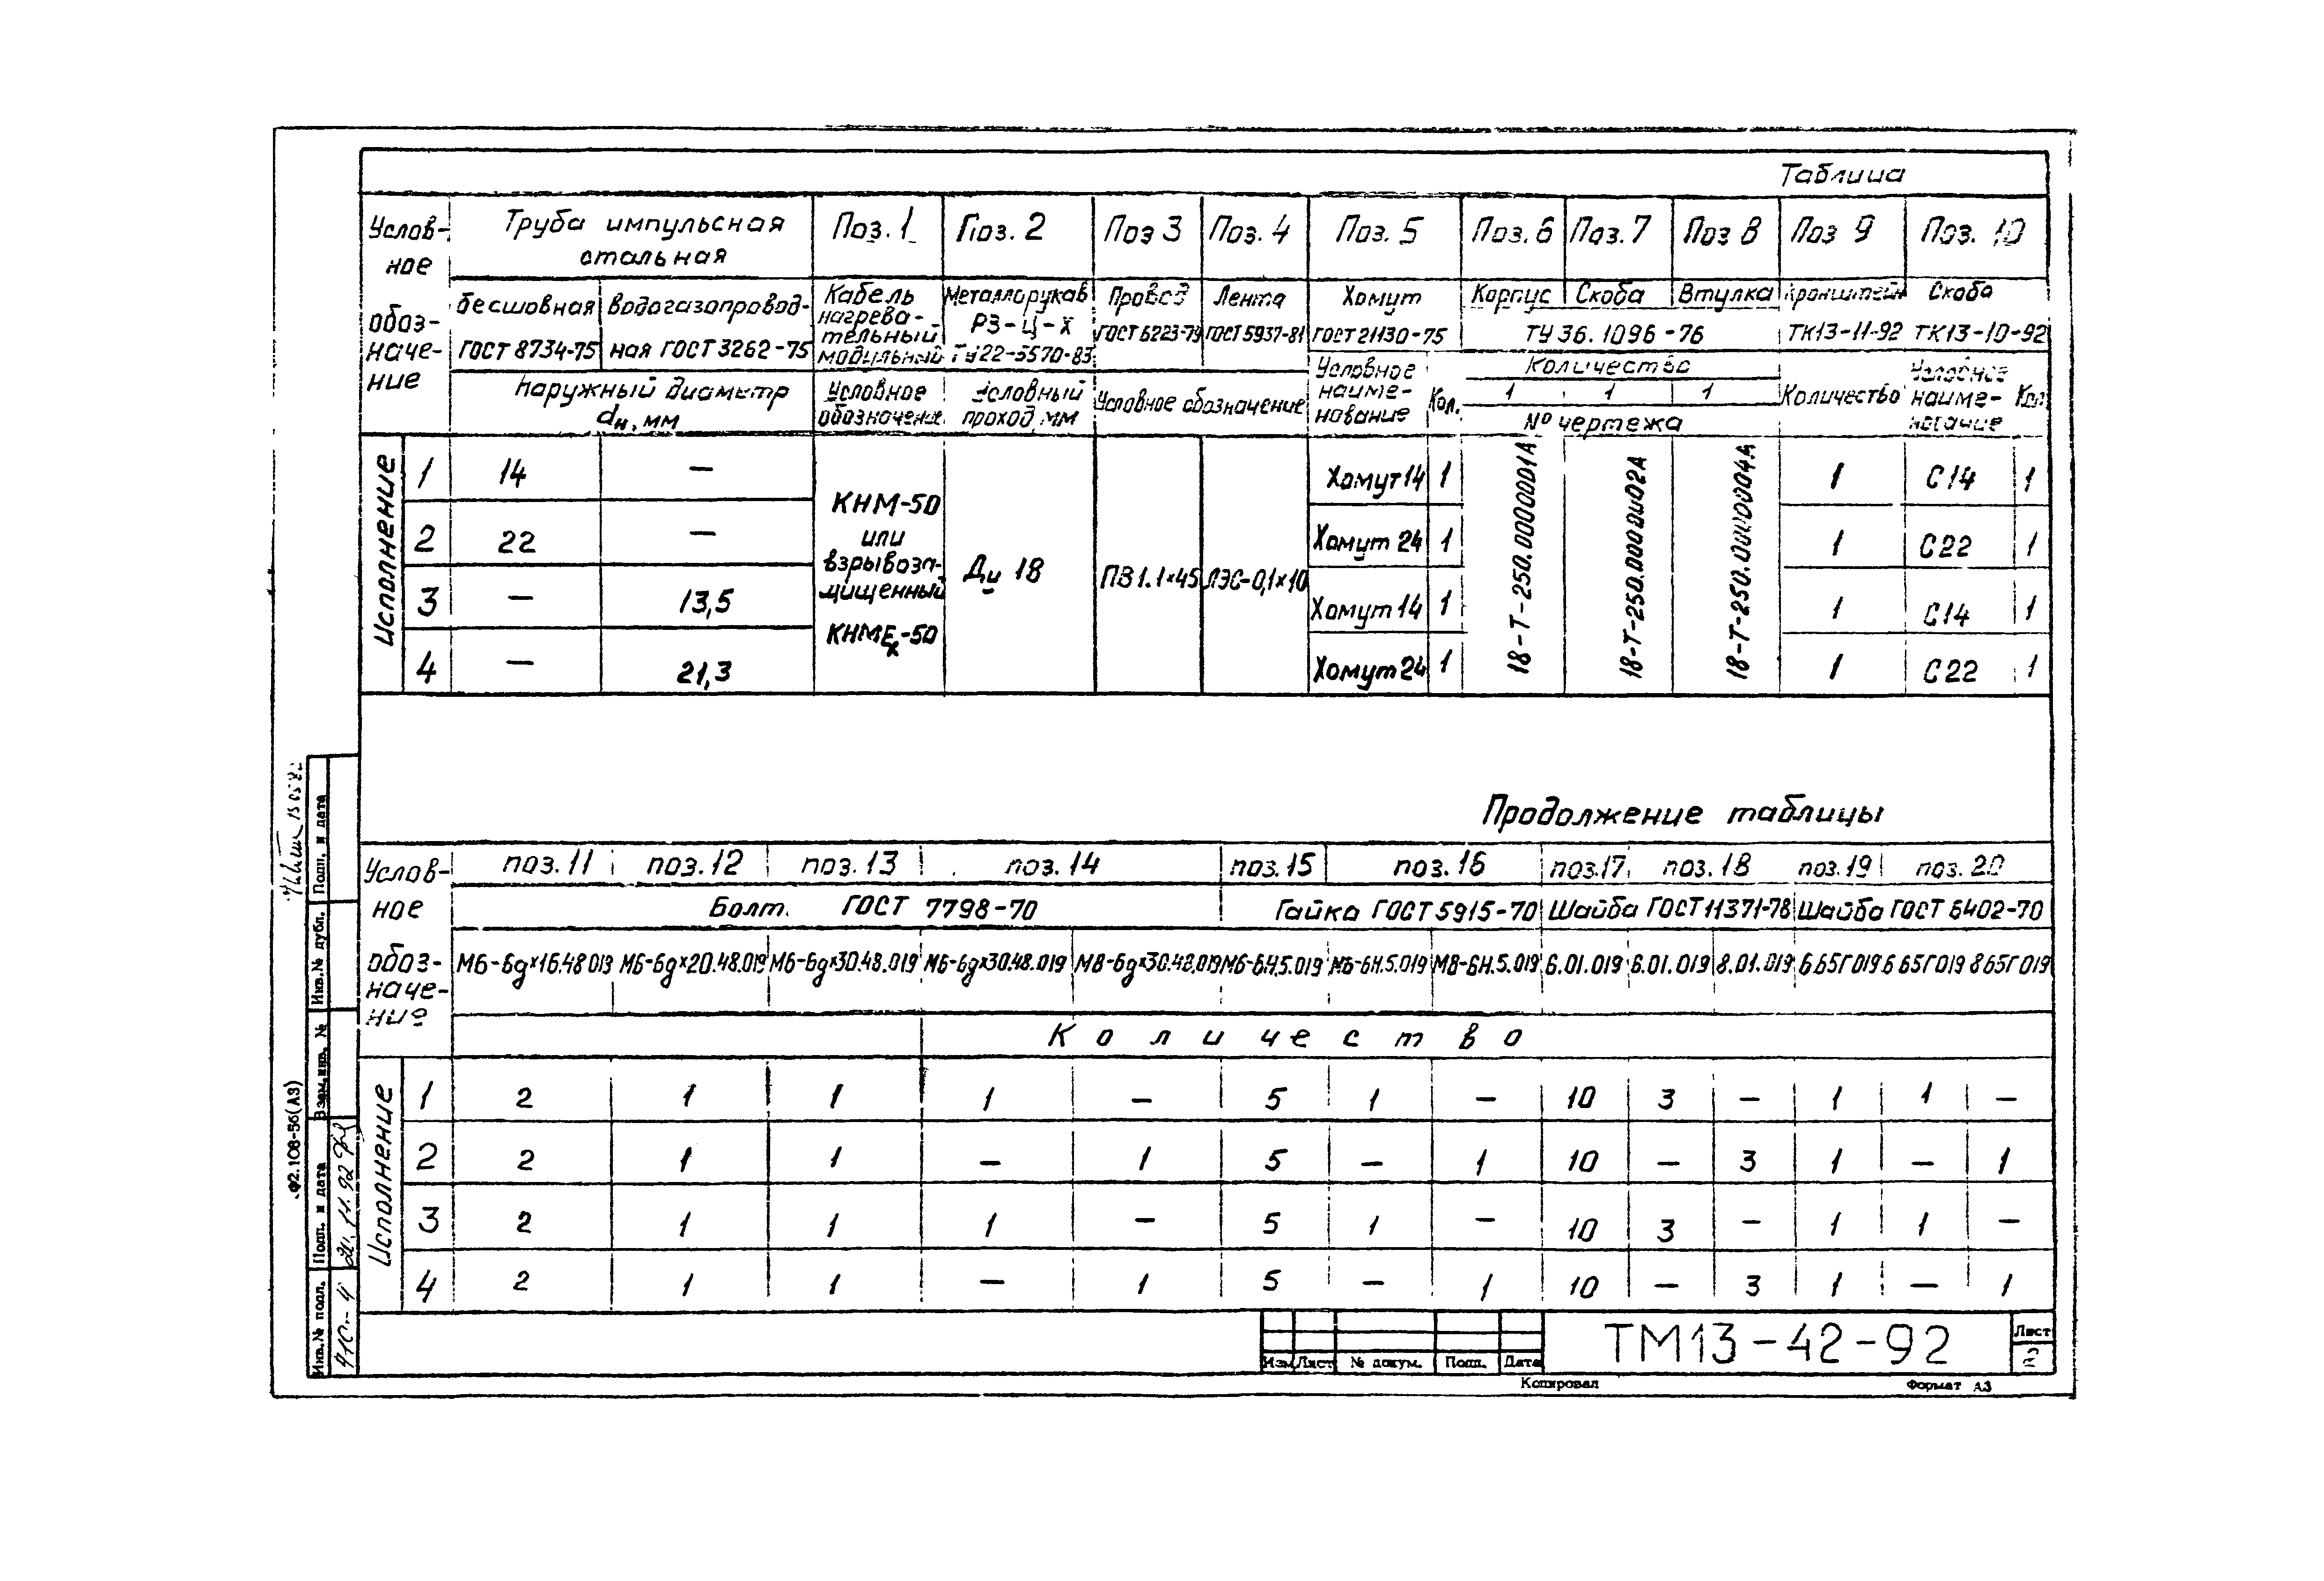 Таблица
Условное обозначение
Труба импульсная стальная
Поз. 1
Поз. 2
Поз 3
Поз. 4
Поз. 5
Поз. 6
Поз. 7
Поз 8
Поз 9
Поз. 10
бесшовная ГОСТ 8734-75
водогазопроводная ГОСТ 3262-75
Кабель нагревательный модульный
Металлорукав РЗ-Ц-Х ТУ22-5570-83
Провод ГОСТ 6223-79
Лента ГОСТ 5937-81
Хомут ГОСТ 21130-75
Корпус Скоба Втулка
ТУ 36. 1096-76
Кронштейн ТК13-11-92
Скоба ТК13-10-92
Наружный диаметр dн, мм
Условное обозначение
Условный проход, мм
Условное обозначение
Условное наименование
Кол.
Количество
1 1 1
№ чертежа
Количество
Условное наименование
Кол
Исполнение
1 14 — Хомут 14 1 1 С14 1
2 22 — Хомут 24 1 1 С22 1
3 — 13,5 Хомут 14 1 1 С14 1
4 — 21,3 Хомут 24 1 1 С22 1
КНМ-50
или
взрывоза-
щищенный
КНМЕх-50
Ду 18
ПВ1. 1×45
ЛЭС-0,1×10
18-Т-250.0000001А
18-Т-250.0000002А
18-Т-250.0000004А
Продолжение таблицы
Условное обозначение
поз. 11 поз. 12 поз. 13 поз. 14 поз. 15 поз. 16 поз. 17 поз. 18 поз. 19 поз. 20
Болт. ГОСТ 7798-70 Гайка ГОСТ 5915-70 Шайба ГОСТ 11371-78 Шайба ГОСТ 6402-70
М6-6g×16.48 019 М6-6g×20.48.019 М6-6g×30.48.019 М6-6g×30.48.019 М8-6g×30.48.019 М6-6Н.5.019 М6-6Н.5.019 М8-6Н.5.019 6.01.019 6.01.019 8.01.019 6.65Г 019 6 65Г 019 8 65Г 019
Количество
Исполнение
1 2 1 1 1 — 5 1 — 10 3 — 1 1 —
2 2 1 1 — 1 5 — 1 10 — 3 1 — 1
3 2 1 1 1 — 5 1 — 10 3 — 1 1 —
4 2 1 1 — 1 5 — 1 10 — 3 1 — 1
Изм Лист № докум. Подп. Дата
ТМ13-42-92
Лист
2
Копировал
Формат А3
Подп. и дата
Инв.№ дубл.
Взам.инв. №
Подп. и дата
Инв.№ подл.
Ф2.108-5б(А3)